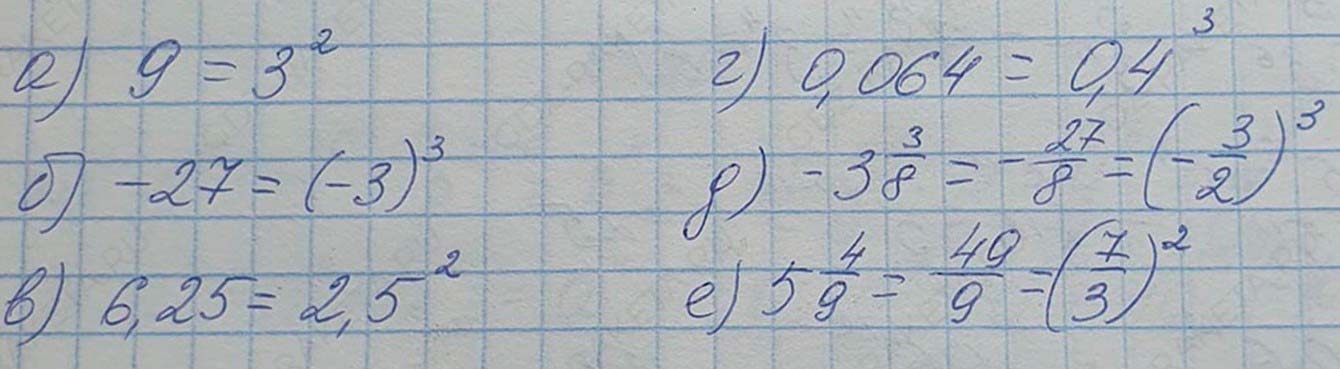 а) 9 = 3²
б) -27 = (-3)³
в) 6,25 = 2,5²
г) 0,064 = 0,4³
д) -3 3/8 = -27/8 = (-3/2)³
е) 5 4/9 = 49/9 = (7/3)²